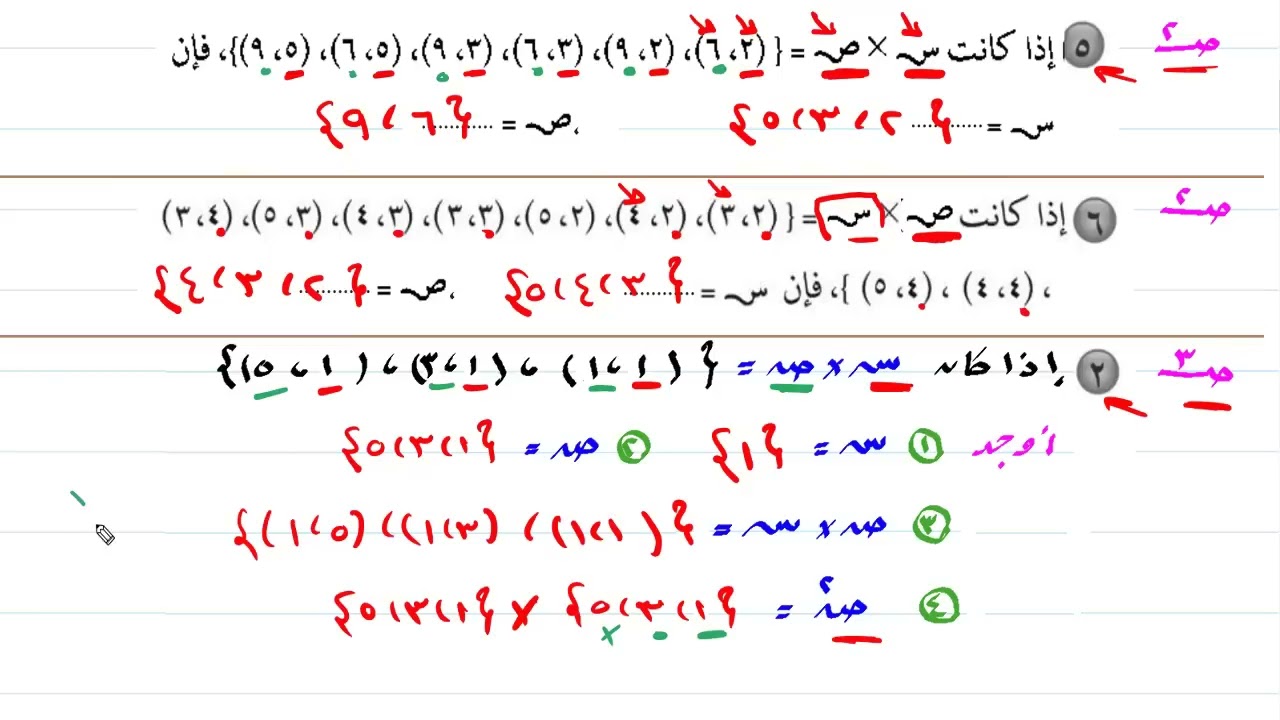 صـ٢ ٥ إذا كانت سـ × صـ = { (٢، ٦)، (٢، ٩)، (٣، ٦)، (٣، ٩)، (٥، ٦)، (٥، ٩)}، فإن
سـ = {٢، ٣، ٥} ،صـ = {٦، ٩}
صـ٢ ٦ إذا كانت صـ × سـ = { (٢، ٣)، (٢، ٤)، (٢، ٥)، (٣، ٣)، (٣، ٤)، (٣، ٥)، (٤، ٣)
، (٤، ٤) ، (٤، ٥) }، فإن سـ = {٣، ٤، ٥} ،صـ = {٢، ٣، ٤}
صـ٣ ٢ إذا كان سـ × صـ = { (١، ١) ، (١، ٣) ، (١، ٥)}
أوجد ١ سـ = {١} ٢ صـ = {١، ٣، ٥}
٣ صـ × سـ = {(١، ١)، (٣، ١)، (٥، ١)}
٤ صـ٢ = {١، ٣، ٥} × {١، ٣، ٥}